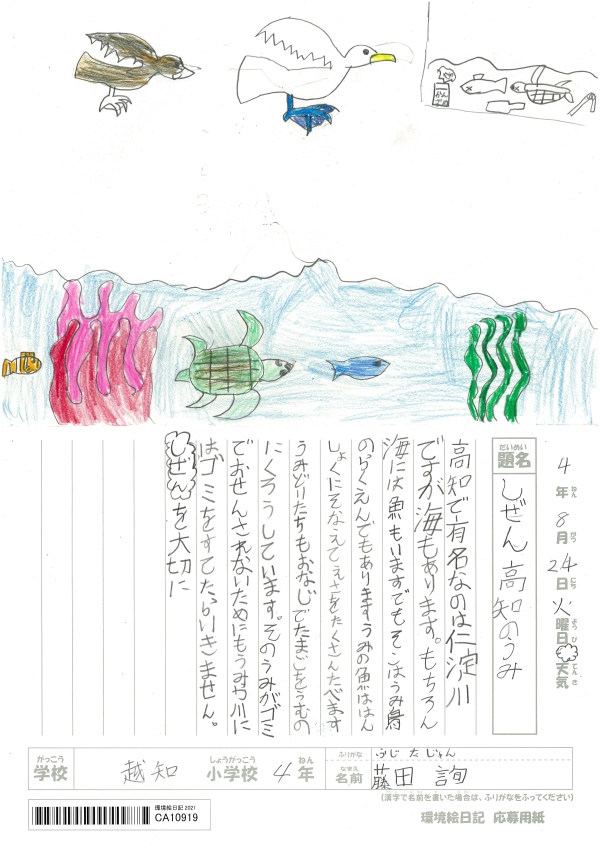 かん
4年8月24日火曜日天気
ねん
がつ
にち
ようび
てんき
だいめい
題名
しぜん高知のうみ
高知で有名なのは仁淀川
ですが海もあります。もちろん
海には魚もいますでもそこはうみ鳥
のらくえんでもありますうみの魚がはん
しょくにそなえてえさをたくさんたべます
うみどりたちもおなじでたまごをうむの
にくろうしています。そのうみがゴミ
でおせんされないためにもうみや川に
はゴミをすてたらいきません。
しぜんを大切に
がっこう
しょうがっこう
ねん
ふりがな
ふじ た じゅん
学校 越知 小学校 4年
なまえ
名前 藤田 詢
(漢字で名前を書いた場合は、ふりがなをふってください)
環境絵日記 2021
CA10919
環境絵日記 応募用紙